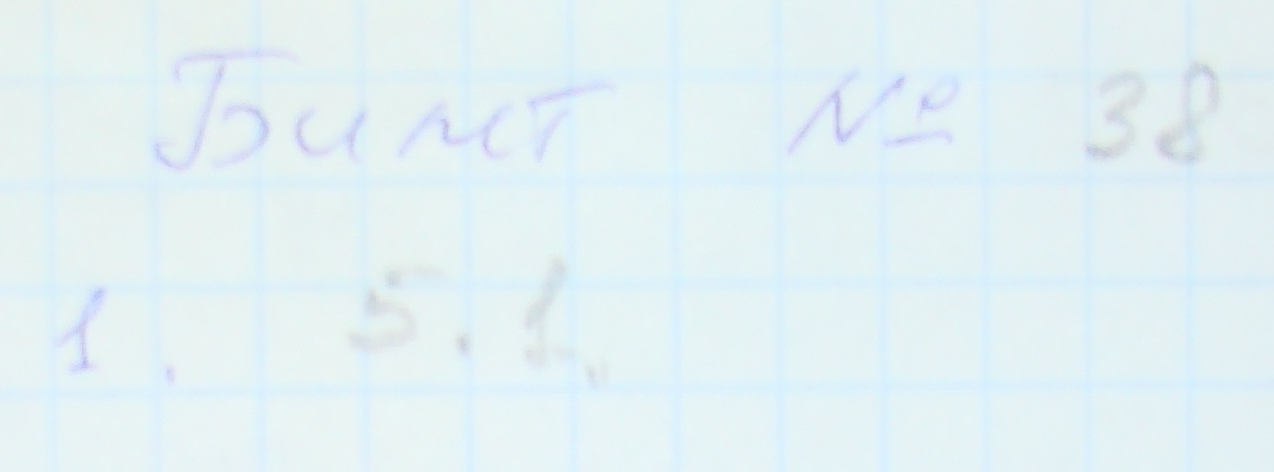 Билет № 38
1. 5.1.